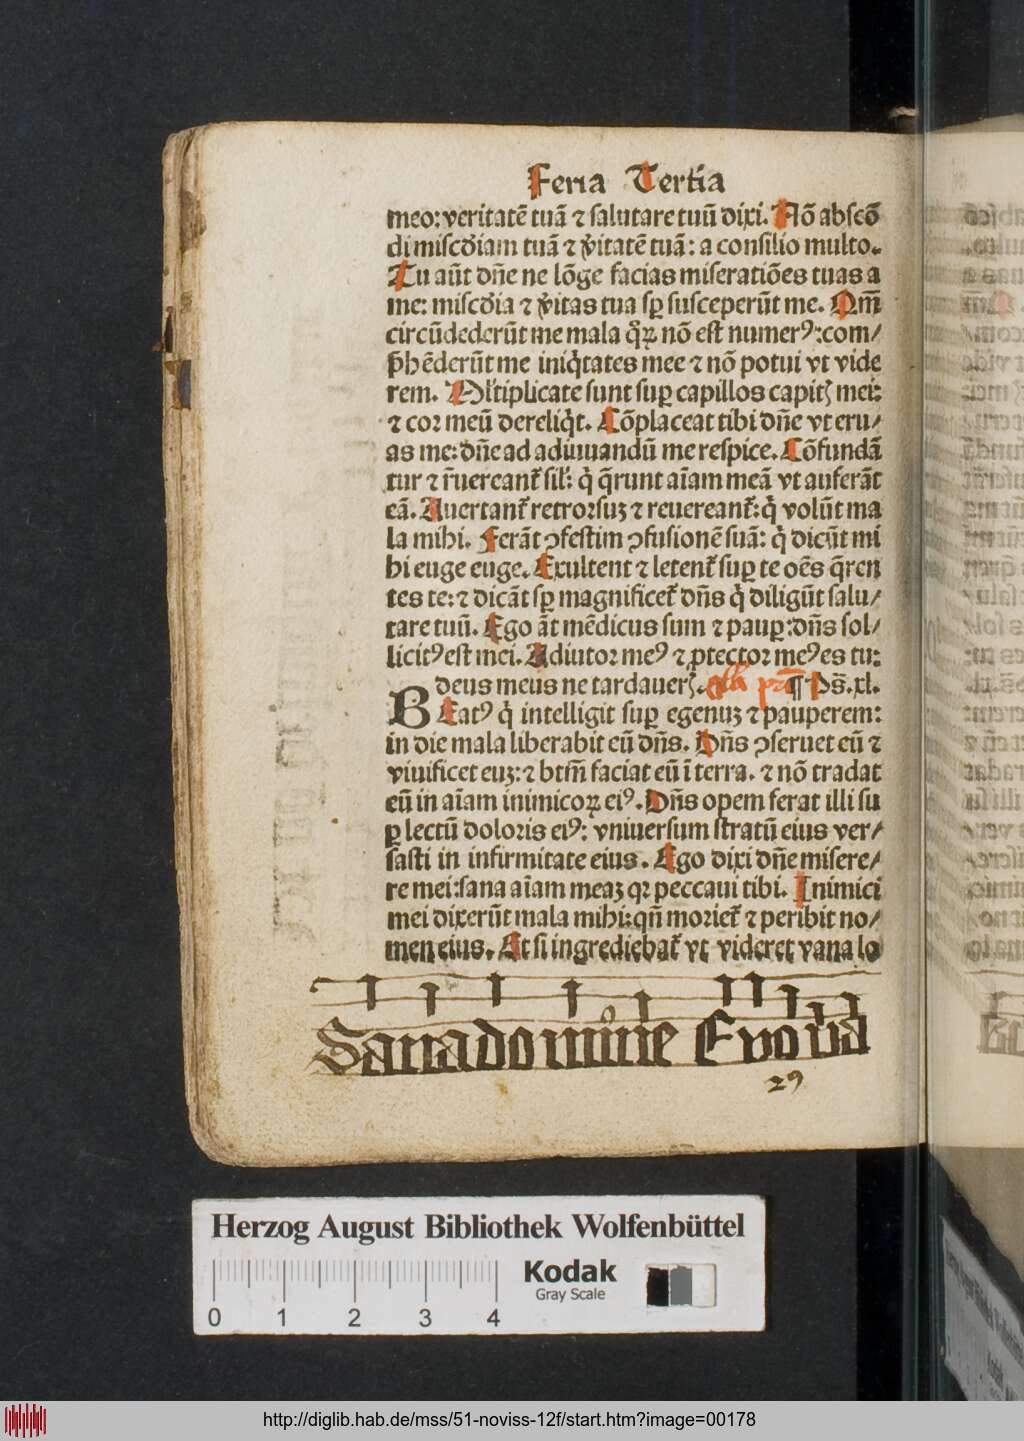 Feria Tertia
meo: veritatē tuā ⁊ salutare tuū dixi. Nō abscō
di misc̄diam tuā ⁊ v̄itatē tuā: a consilio multo.
Tu aūt dn̄e ne lōge facias miseratiōes tuas a
me: misc̄dia ⁊ v̄itas tua sꝑ susceperūt me. Qm̄
circūdederūt me mala qͦꝝ nō est numerꝰ: com/
p̄hēderūt me iniqͥtates mee ⁊ nō potui vt vide
rem. Ml̓tiplicate sunt suꝑ capillos capitꝭ mei:
⁊ cor meū dereliqͥt. Cōplaceat tibi dn̄e vt eru/
as me: dn̄e ad adiuuandū me respice. Cōfundā
tur ⁊ r̄uereant᷑ sil̓: qͥ q̄runt aīam meā vt auferāt
eā. Auertant᷑ retrorsuꝫ ⁊ reuereant᷑: qͥ volūt ma
la mihi. Ferāt ꝯfestim ꝯfusionē suā: qͥ dicūt mi
hi euge euge. Exultent ⁊ letent᷑ suꝑ te oēs q̄ren
tes te: ⁊ dicāt sꝑ magnificet᷑ dn̄s qͥ diligūt salu/
tare tuū. Ego āt mēdicus sum ⁊ pauꝑ: dn̄s sol/
licitꝰ est mei. Adiutor meꝰ ⁊ ꝓtector meꝰ es tu:
deus meus ne tardauerꝭ. ¶ Ps̄. xl.
BEatꝰ qͥ intelligit suꝑ egenuꝫ ⁊ pauperem:
in die mala liberabit eū dn̄s. Dn̄s ꝯseruet eū ⁊
viuificet euꝫ: ⁊ btm̄ faciat eū ī terra. ⁊ nō tradat
eū in aīam inimicoꝝ eiꝰ. Dn̄s opem ferat illi su
ꝑ lectū doloris eiꝰ: vniuersum stratū eius ver/
sasti in infirmitate eius. Ego dixi dn̄e misere/
re mei: sana aīam meaꝫ qꝛ peccaui tibi. Inimici
mei dixerūt mala mihi: qn̄ moriet᷑ ⁊ peribit no/
men eius. Et si ingrediebat᷑ vt videret vana lo
Sana domine Evova
29
Herzog August Bibliothek Wolfenbüttel
0 1 2 3 4
Kodak
Gray Scale
http://diglib.hab.de/mss/51-noviss-12f/start.htm?image=00178